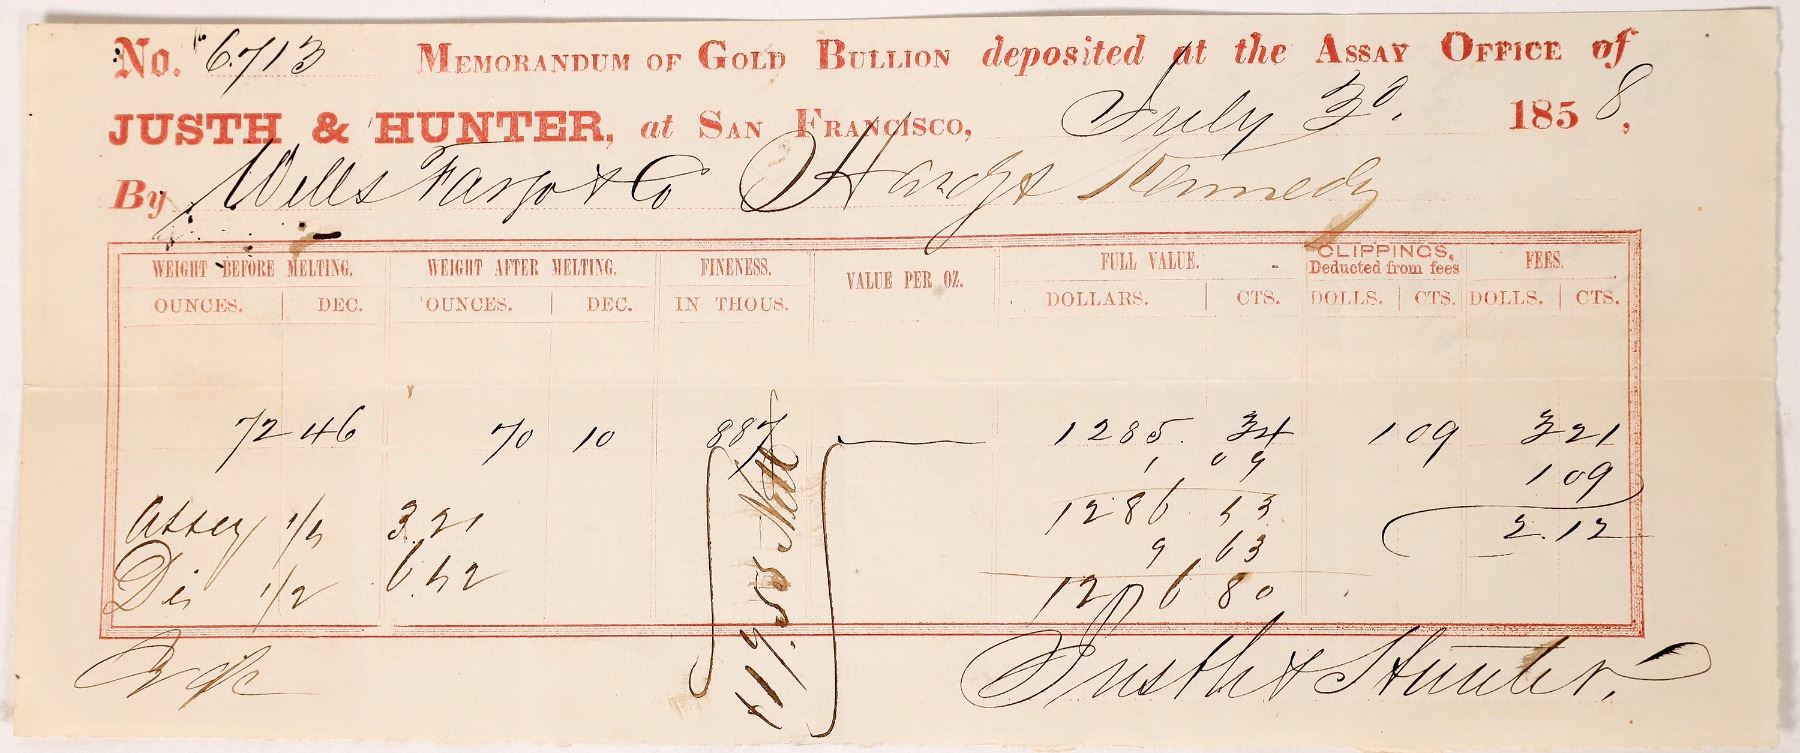 No. 6713 MEMORANDUM OF GOLD BULLION deposited at the ASSAY OFFICE of
JUSTH & HUNTER, at SAN FRANCISCO, July 30. 1858,
By Wells Fargo & Co Hardy & Kennedy
WEIGHT BEFORE MELTING. WEIGHT AFTER MELTING. FINENESS. VALUE PER OZ. FULL VALUE. CLIPPINGS, Deducted from fees FEES.
OUNCES. DEC. OUNCES. DEC. IN THOUS. DOLLARS. CTS. DOLLS. CTS. DOLLS. CTS.
72 46 70 10 887 1285. 34 1 09 3 21
1 09 1 09
Assay 1/4 3.21 1286 43 2.12
Dis 1/2 6.42 9 63
1276 80
Nett
Justh & Hunter.